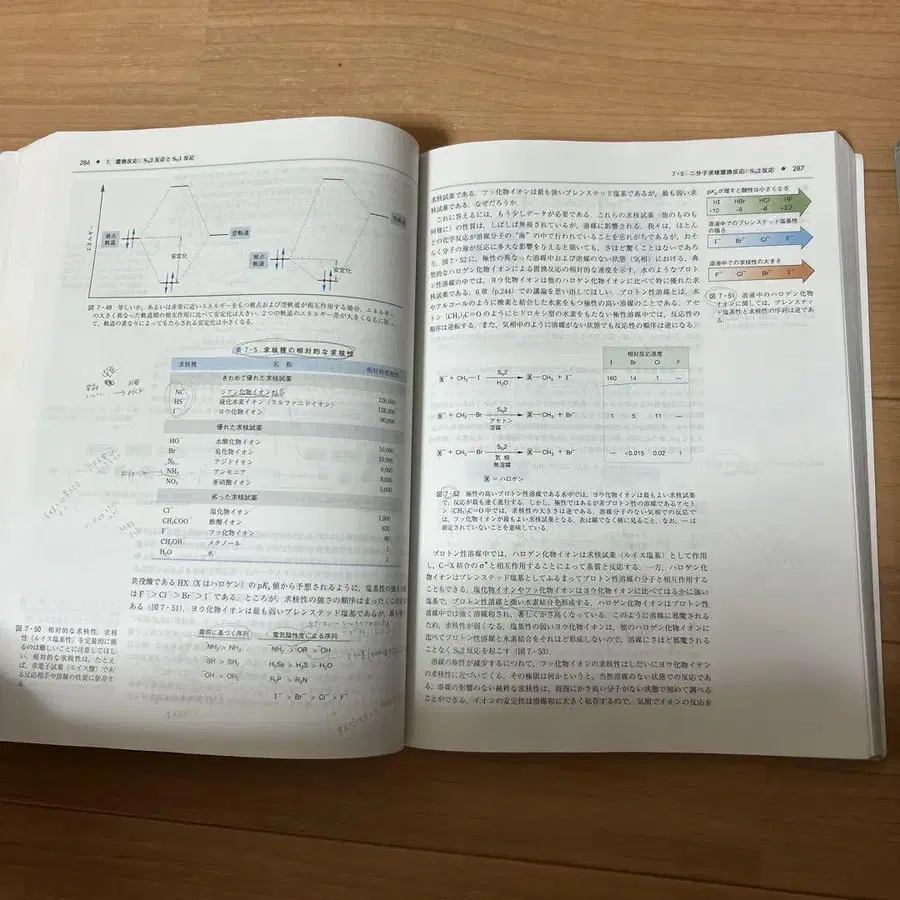 286 • 7. 置換反応: SN2反応とSN1反応
エネルギー
被占
軌道
空軌道
安定化
被占
軌道
空軌道
安定化
図 7・49 等しいか，あるいは非常に近いエネルギーをもつ被占および空軌道が相互作用する場合，エネルギー
の大きく異なった軌道間の相互作用に比べて安定化は大きい．2つの軌道のエネルギー差が大きくなるに従っ
て，軌道の重なりによってもたらされる安定化は小さくなる．
表 7・5 求核種の相対的な求核性
求核種 名称 相対的求核性
きわめて優れた求核試薬
NC⁻ シアン化物イオン 126,000
HS⁻ 硫化水素イオン（スルファニドイオン） 126,000
I⁻ ヨウ化物イオン 80,000
優れた求核試薬
HO⁻ 水酸化物イオン 16,000
Br⁻ 臭化物イオン 10,000
N₃⁻ アジドイオン 8,000
NH₃ アンモニア 8,000
NO₂⁻ 亜硝酸イオン 5,000
劣った求核試薬
Cl⁻ 塩化物イオン 1,000
CH₃COO⁻ 酢酸イオン 630
F⁻ フッ化物イオン 80
CH₃OH メタノール 1
H₂O 水 1
共役酸である HX（X はハロゲン）の pKa 値から予想されるように，塩基性の強さの順
は F⁻＞Cl⁻＞Br⁻＞I⁻ である．ところが，求核性の強さの順序はまったくこの逆で
ある（図7・51）．ヨウ化物イオンは最も弱いブレンステッド塩基であるが，最も強い
図 7・50 相対的な求核性．求核
性（ルイス塩基性）を定量的に測
るのは難しいことに注意してほし
い．相対的な求核性は，たとえ
ば，求電子試薬（ルイス酸）であ
る反応相手や溶媒の性質に依存す
る．
電荷に基づく序列 電気陰性度による序列
NH₂⁻ > NH₃ NH₂⁻ > ⁻OR > OH
SH⁻ > SH₂ H₂Se > H₂S > H₂O
OH⁻ > OH₂ R₃P > R₃N
I⁻ > Br⁻ > Cl⁻ > F⁻
7・5 二分子求核置換反応: SN2反応 • 287
求核試薬である．フッ化物イオンは最も強いブレンステッド塩基であるが，最も弱い求
核試薬である．なぜだろうか．
これに答えるには，もう少しデータが必要である．これらの求核試薬（他のものも
同様に）の性質は，しばしば無視されているが，溶媒に影響される．我々は，ほとん
どの化学反応が溶媒分子の“海”の中で行われていることを忘れがちであるが，おそ
らく分子の海が反応に多大な影響を与えると聞いても，さほど驚くことはないであろ
う．図7・52に，極性の異なった溶媒中および溶媒のない状態（気相）における，典
型的なハロゲン化物イオンによる置換反応の相対的な速度を示す．水のようなプロト
ン性溶媒中では，ヨウ化物イオンは他のハロゲン化物イオンに比べて特に優れた求
核試薬である．6章（p.244）での議論を思い出してほしい．プロトン性溶媒とは，水
やアルコールのように酸素と結合した水素をもつ極性の高い溶媒のことである．アセ
トン (CH₃)₂C=O のようにヒドロキシ型の水素をもたない極性溶媒中では，反応性の
順序は逆転する．また，気相中のように溶媒がない状態でも反応性の順序は逆になる．
pKaが増すと酸性は小さくなる
HI HBr HCl HF
-10 -9 -8 +3.2
溶液中でのブレンステッド塩基性
の強さ
I⁻ Br⁻ Cl⁻ F⁻
溶液中での求核性の大きさ
F⁻ Cl⁻ Br⁻ I⁻
図 7・51 溶液中のハロゲン化物
イオンに関しては，ブレンステッ
ド塩基性と求核性の序列は逆であ
る．
相対反応速度
I Br Cl F
X⁻ + CH₃—I SN2 H₂O X—CH₃ + I⁻ 160 14 1 —
X⁻ + CH₃—Br SN2 アセトン 溶媒 X—CH₃ + Br⁻ 1 5 11 —
X⁻ + CH₃—Br SN2 気相 無溶媒 X—CH₃ + Br⁻ — <0.015 0.02 1
X = ハロゲン
図 7・52 極性の高いプロトン性溶媒である水中では，ヨウ化物イオンは最もよい求核試薬
で，反応が最も速く進行する．しかし，極性ではあるが非プロトン性の溶媒であるアセト
ン (CH₃)₂C=O 中では，求核性の大きさは逆である．溶媒分子のない気相での反応で
は，フッ化物イオンが最もよい求核試薬となる．表は縦でなく横に見ること．なお，— は
測定されていないことを意味している．
プロトン性溶媒中では，ハロゲン化物イオンは求核試薬（ルイス塩基）として作用
し，C—X 結合の σ* と相互作用することによって基質と反応する．一方，ハロゲン化
物イオンはブレンステッド塩基としてふるまってプロトン性溶媒の分子と相互作用する
こともできる．塩化物イオンやフッ化物イオンはヨウ化物イオンに比べてはるかに強い
塩基で，プロトン性溶媒と強い水素結合を形成する．ハロゲン化物イオンはプロトン性
溶媒中では強く溶媒和され，著しくかさ高くなっている．このように溶媒に邪魔される
ため，求核性が弱くなる．塩基性の弱いヨウ化物イオンは，他のハロゲン化物イオンに
比べてプロトン性溶媒と水素結合をそれほど形成しないので，溶媒にさほど邪魔される
ことなく SN2 反応を起こす（図7・53）．
溶媒の極性が減少するにつれて，フッ化物イオンの求核性はしだいにヨウ化物イオン
の求核性に近づいてくる．その極限は何かというと，当然溶媒のない状態での反応であ
る．溶媒の影響のない純粋な求核性は，周囲にかさ高い分子がない状態で初めて調べる
ことができる．イオンの安定性は溶媒和に大きく依存するので，気相でイオンの反応を